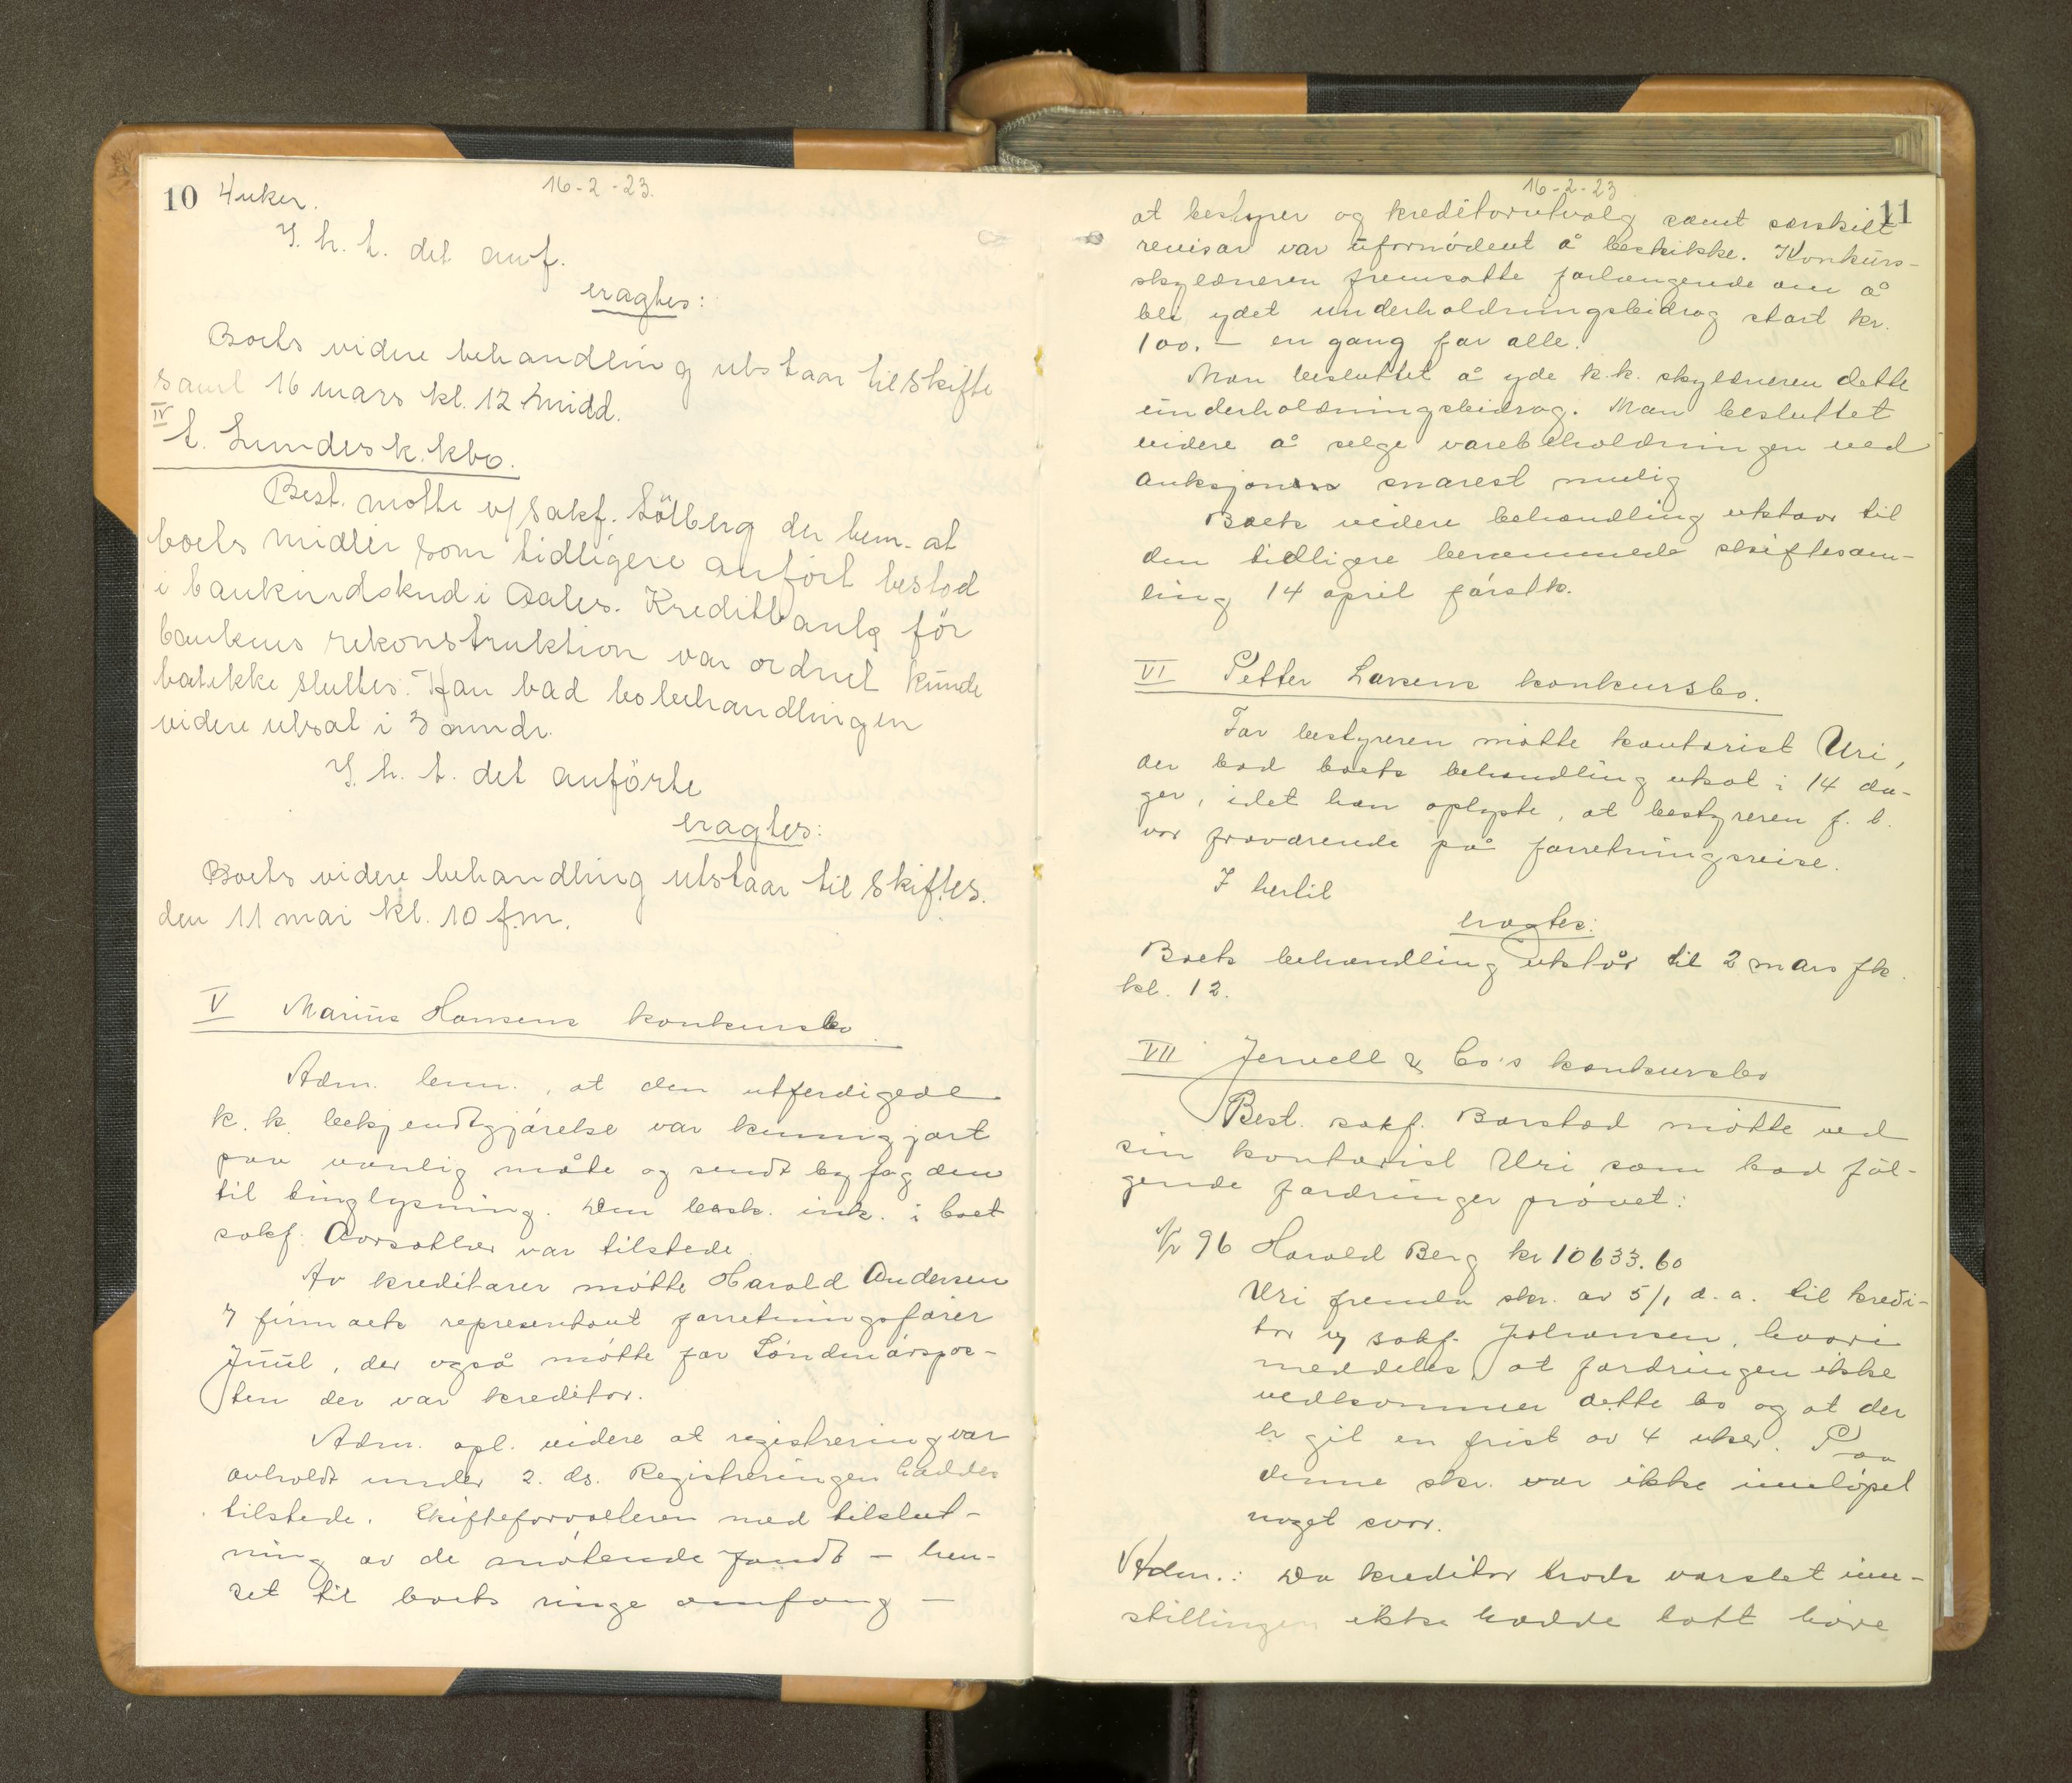 10 4 uker. 16-2-23.
I. h. t. det anf.
eragtes:
Boets videre behandling utstaar til skifte
saml 16 mars kl. 12 midd.
IV L. Lundes k. kbo.
Best. møtte v/ sakf. Sölberg der bem. at
boets midler som tidligere anfört bestod
i bankindskud i Aales. Kreditbank før
bankens rekonstruktion var ordnet kunde
boet ikke sluttes. Han bad bobehandlingen
videre utsat i 3 mndr.
I. h. t. det anförte
eragtes:
Boets videre behandling utstaar til skiftes.
den 11 mai kl. 10 f.m.
V Marius Hansens konkursbo
Adm. bem., at den utferdigede
k. k. bekjendtgjørelse var kunngjort
paa vanlig måte og sendt byfogden
til tinglysning. Den besk. ink. i boet
sakf. Aarsæther var tilstede.
Av kreditorer møtte Harald Andersen
v/ firmaets representant forretningsfører
Juul, der også møtte for Söndmörspos-
ten der var kreditor.
Adm. opl. videre at registrering var
avholdt under 2. ds. Registreringen haddes
tilstede. Skifteforvalteren med tilslut-
ning av de møtende fandt – hen-
set til boets ringe omfang –
16-2-23 11
at bestyrer og kreditorutvalg samt særskilt
revisor var ufornødent å beskikke. Konkurs-
skyldneren fremsatte forlangende om å
bli ydet underholdningsbidrag stort kr.
100.– en gang for alle.
Man besluttet å yde k.k. skyldneren dette
underholdningsbidrag. Man besluttet
videre å selge varebeholdningen ved
auksjon snarest mulig
Boets videre behandling utstaar til
den tidligere berammede skiftesam-
ling 14 april førstk.
VI Petter Larsens konkursbo.
For bestyreren møtte kontorist Uri,
der bad boets behandling utsat i 14 da-
ger, idet han oplyste, at bestyreren f. t.
var fraværende på forretningsreise.
I hertil
eragtes:
Boets behandling utstår til 2 mars fk.
kl. 12.
VII Jervell & Co's konkursbo
Best. sakf. Barstad møtte ved
sin kontorist Uri som bad føl-
gende fordringer prøvet:
Nr 96 Harald Berg kr 10633.60
Uri fremla skr. av 5/1 d. a. til kredi-
tor v/ sakf. Johansen, hvori
meddeles, at fordringen ikke
vedkommer dette bo og at der
er git en frist av 4 uker. Paa
denne skr. var ikke innløpet
noget svar.
Adm.: Da kreditor trods varslet inn-
stillingen ikke hadde latt høre